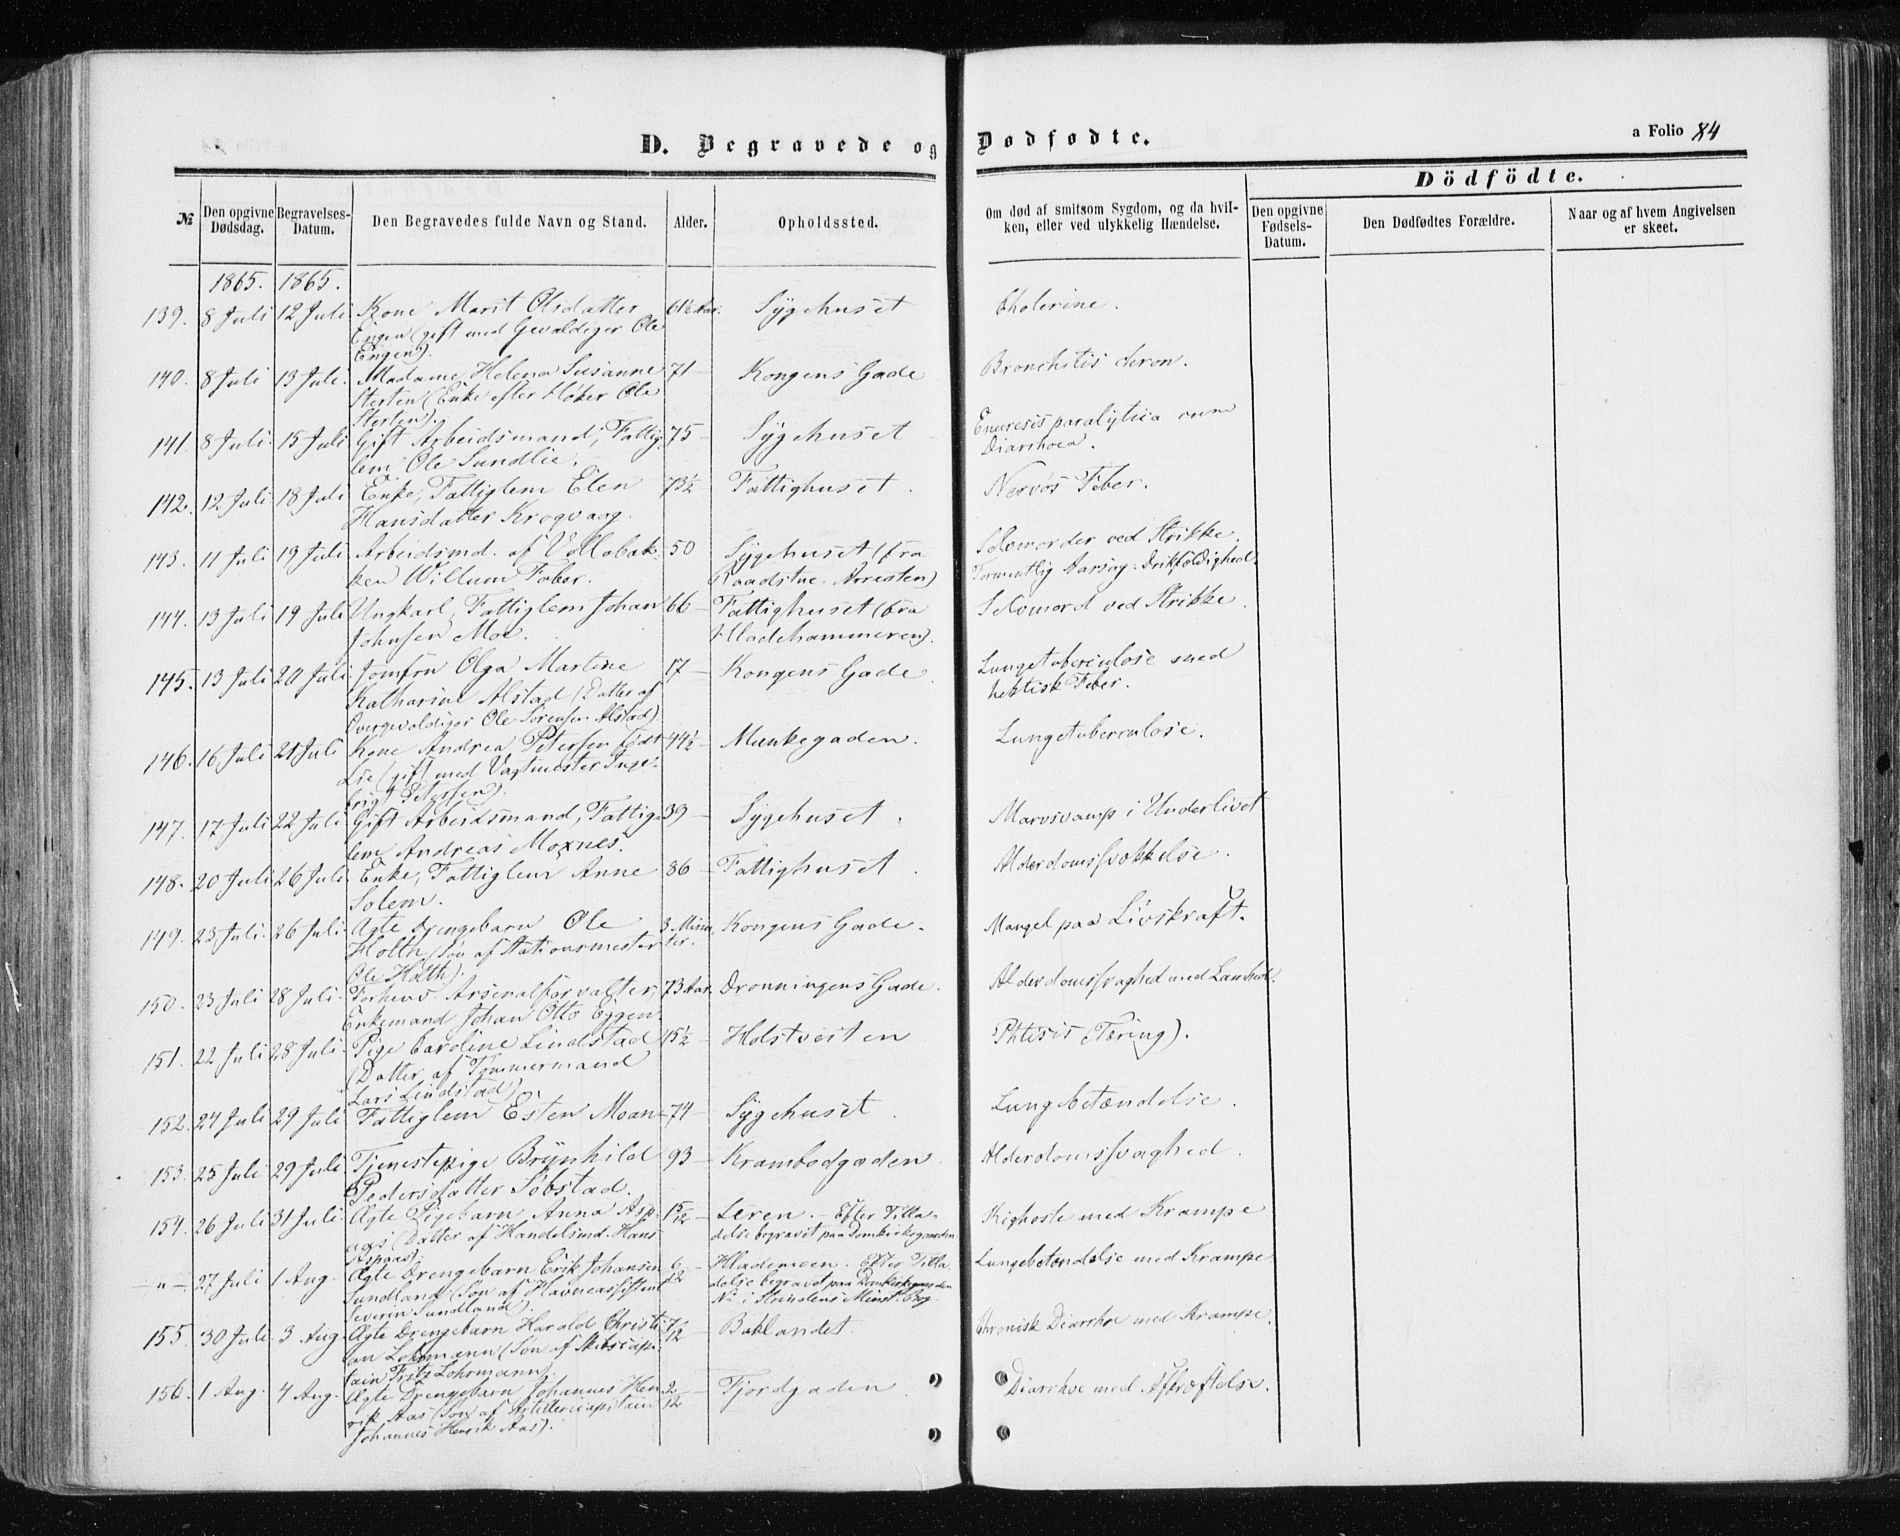 D. Begravede og Dødfødte.
a Folio 84
Dödfödte.
№
Den opgivne Dødsdag.
Begravelses-Datum.
Den Begravedes fulde Navn og Stand.
Alder.
Opholdssted.
Om død af smitsom Sygdom, og da hvil-
ken, eller ved ulykkelig Hændelse.
Den opgivne Fødsels-Datum.
Den Dødfødtes Forældre.
Naar og af hvem Angivelsen er skeet.
1865. 1865.
139. 8 Juli 12 Juli Kone Marit Olsdatter 61½ Aar. Sygehuset Cholerine.
Engen (gift med Gevaldiger Ole
Engen).
140. 8 Juli 13 Juli. Madame Helena Susanne 71 – Kongens Gade Bronchitis chron.
Sterten (Enke efter Høker Ole
Sterten).
141. 8 Juli. 15 Juli Gift Arbeidsmand, Fattig- 75 – Sygehuset Enuresis paralytica cum
lem Ole Sundlie. Diarrhoea.
142. 12 Juli 18 Juli Enke, Fattiglem Elen 73½ Fattighuset. Nervøs Feber.
Hansdatter Krogvaag.
143. 11 Juli 19 Juli Arbeidsmd. af Vollabak- 50 Sygehuset (fra Selvmorder ved Strikke.
ken Willum Faber. Raadstue Arresten) Formentlig Aarsag: Drikfældighed.
144. 13 Juli 19 Juli Ungkarl, Fattiglem Johan 66 – Fattighuset (fra Selvmord ved Strikke.
Johnsen Moe. Hladehammeren).
145. 13 Juli 20 Juli Jomfru Olga Martine 17 – Kongens Gade. Lungetuberculose med
Katharine Alstad (Datter af hektisk Feber.
Overgevaldiger Ole Sørensen Alstad).
146. 16 Juli 21 Juli Kone Andrea Petersen født 44½ – Munkegaden. Lungetuberculose.
Lie (gift med Vagtmester Inge-
brigt Petersen).
147. 17 Juli 22 Juli Gift Arbeidsmand, Fattig- 39 – Sygehuset. Marvsvamp i Underlivet
lem Andreas Moxnes.
148. 20 Juli 26 Juli Enke, Fattiglem Anne 86 – Fattighuset. Alderdomssvækkelse.
Solem.
149. 23 Juli. 26 Juli. Ægte Drengebarn Ole 3 Minu- Kongens Gade. Mangel paa Livskraft.
Holth (Søn af Stationsmester ter.
Ole Holth).
150. 23 Juli 28 Juli. Forhenv. Arsenalforvalter, 73 Aar. Dronningens Gade. Alderdomssvaghed med Lamhed.
Enkemand Johan Otto Eggen.
151. 22 Juli 28 Juli. Pige Caroline Lindstad 15½ – Holstveiten Phtisis (Tæring).
(Datter af Tømmermand
Lars Lindstad)
152. 24 Juli 29 Juli Fattiglem Esten Moan 74 – Sygehuset. Lungebetændelse.
153. 25 Juli 29 Juli Tjenestepige Brynhild 93 – Krambodgaden. Alderdomssvaghed.
Pedersdatter Solstad.
154. 26 Juli 31 Juli. Ægte Pigebarn Anna Asp- 15/12 – Leren. – Efter Tilla- Kighoste med Krampe
aas (Datter af Handelsmd. Hans delse begravet paa Domkirkegaarden.
Aspaas).
– " – 27 Juli 1 Aug. Ægte Drengebarn Erik Johansen 6/12 Hlademoen. Efter Tilla- Lungebetændelse med Krampe
Sundland (Søn af Havneassistent delse begravet paa Domkirkegaarden
Severin Sundland). No i Strindens Minist. Bog.
155. 30 Juli 3 Aug. Ægte Drengebarn Harald Christi- 7/12 – Baklandet. Chronisk Diarrhoe med Krampe.
an Lohrmann (Søn af Skibscap-
tain Fritz Lohrmann).
156. 1 Aug. 4 Aug. Ægte Drengebarn Johannes Hen- 2/12 – Fjordgaden. Diarrhoe med Afkræftelse.
rik Aas (Søn af Artillericapitain
Johannes Henrik Aas).